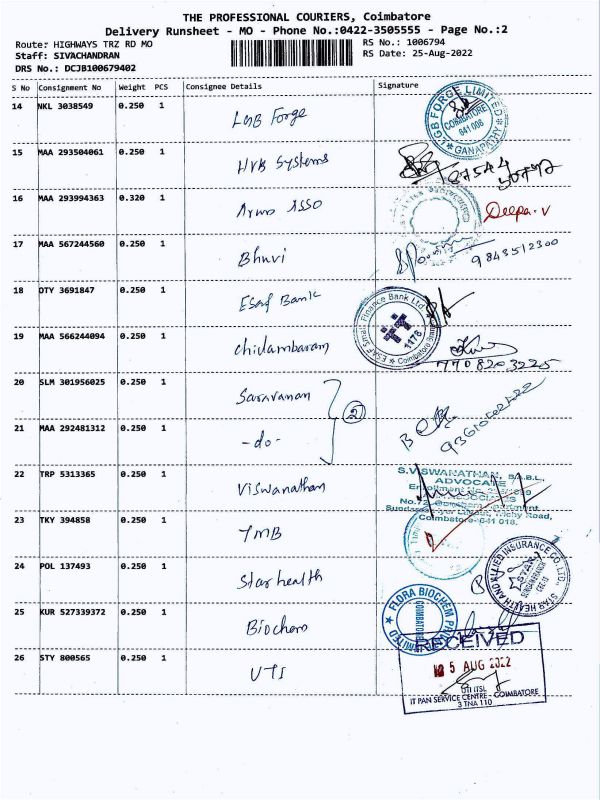 THE PROFESSIONAL COURIERS, Coimbatore
Delivery Runsheet - MO - Phone No.:0422-3505555 - Page No.:2
Route: HIGHWAYS TRZ RD MO
RS No.: 1006794
Staff: SIVACHANDRAN
RS Date: 25-Aug-2022
DRS No.: DCJB100679402
S No Consignment No Weight PCS Consignee Details Signature
14 NKL 3038549 0.250 1 LGB Forge
L.G.B FORGE LIMITED COIMBATORE 641 006 GANAPATHY
15 MAA 293504061 0.250 1 HVB Systems
16 MAA 293994363 0.320 1
Deepa.V
17 MAA 567244560 0.250 1 Bhuvi
9843512300
18 DTY 3691847 0.250 1 Esaf Bank
ESAF Small Finance Bank Ltd 1178 Coimbatore
19 MAA 566244094 0.250 1 Chidambaram
7708203225
20 SLM 301956025 0.250 1 Saravanan
2
21 MAA 292481312 0.250 1 -do-
22 TRP 5313365 0.250 1 Viswanathan
S.VISWANATHAN,
ADVOCATE
Coimbatore-641 018.
23 TKY 394858 0.250 1 TMB
24 POL 137493 0.250 1 Star health
STAR HEALTH AND ALLIED INSURANCE CO. LTD.
25 KUR 527339372 0.250 1 Biochem
FLORA BIOCHEM LIMITED COIMBATORE
26 STY 800565 0.250 1 UTI
RECEIVED
5 AUG 2022
UTI ITSL
IT PAN SERVICE CENTRE - COIMBATORE
3 TNA 110